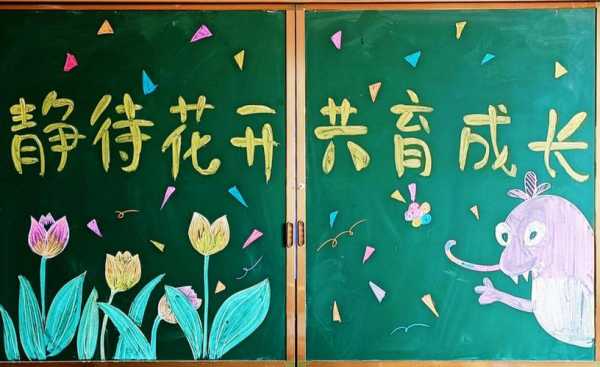 静待花开共育成长